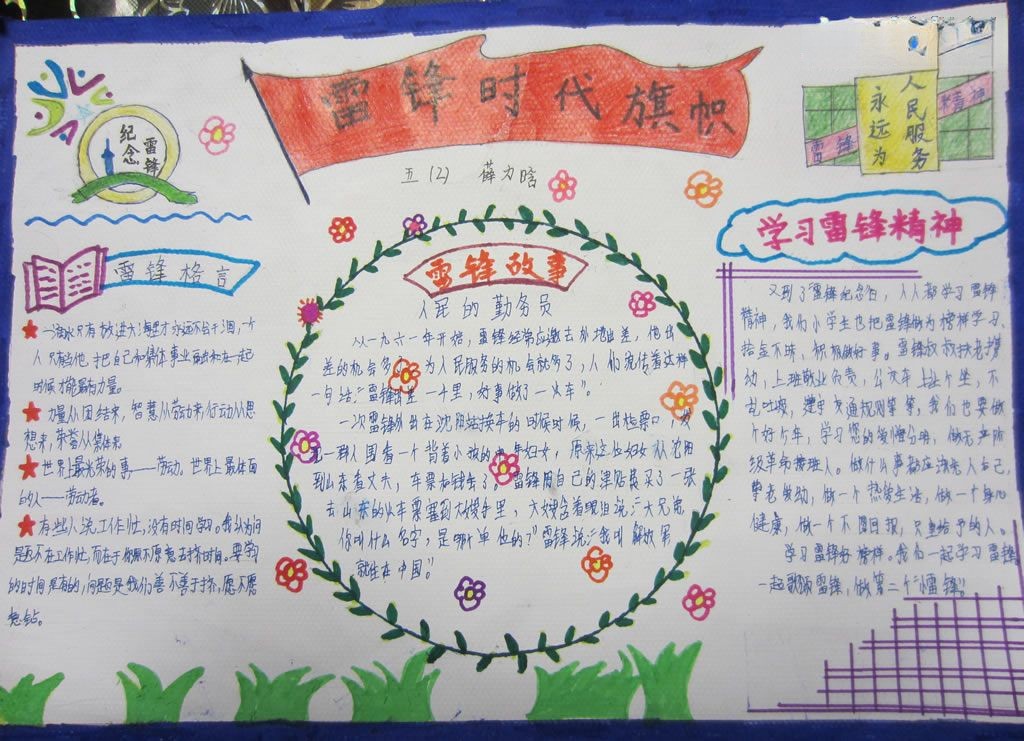 雷锋时代旗帜
五(2) 薛力晗
纪念
雷锋
雷锋
永远为
人民服务
精神
雷锋格言
★一滴水只有放进大海里才永远不会干涸,一个
人只有当他把自己和集体事业融和在一起
时候才能最有力量。
★力量从团结来,智慧从劳动来,行动从思
想来,荣誉从集体来
★世界上最光荣的事——劳动,世界上最体面
的人——劳动者。
★有些人说工作忙,没有时间学习。我认为问
题不在工作忙,而在于你愿不愿意去挤时间。要学习
的时间是有的,问题是我们善不善于挤,愿不愿
意钻。
雷锋故事
人民的勤务员
从一九六一年开始,雷锋经常应邀去外地出差,他出
差的机会多了,为人民服务的机会就多了,人们流传着这样
一句话:“雷锋出差一千里,好事做了一火车”。
一次雷锋外出在沈阳站换车的时候,一出检票口,发
现一群人围着一个背着小孩的中年妇女,原来这位妇女从沈阳
到山东看丈夫,车票和钱丢了。雷锋用自己的津贴费买了一张
去山东的火车票塞到大嫂手里,大嫂含着眼泪说:“大兄弟,
你叫什么名字,是哪个单位的?”雷锋说:“我叫解放军
就住在中国。”
学习雷锋精神
又到了雷锋纪念日,人人都学习雷锋
精神,我们小学生也把雷锋做为榜样学习,
拾金不昧,积极做好事。雷锋叔叔扶老携
幼,上班敬业负责,公交车上让个坐,不
乱吐痰,遵守交通规则等等,我们也要做
个好少年,学习您的爱憎分明,做无产阶
级革命接班人。做什么事都应该先人后己,
尊老爱幼,做一个热爱生活,做一个身心
健康,做一个不图回报,只是给予的人。
学习雷锋好榜样。我们一起学习雷锋
一起歌颂雷锋,做第二个“小雷锋”。